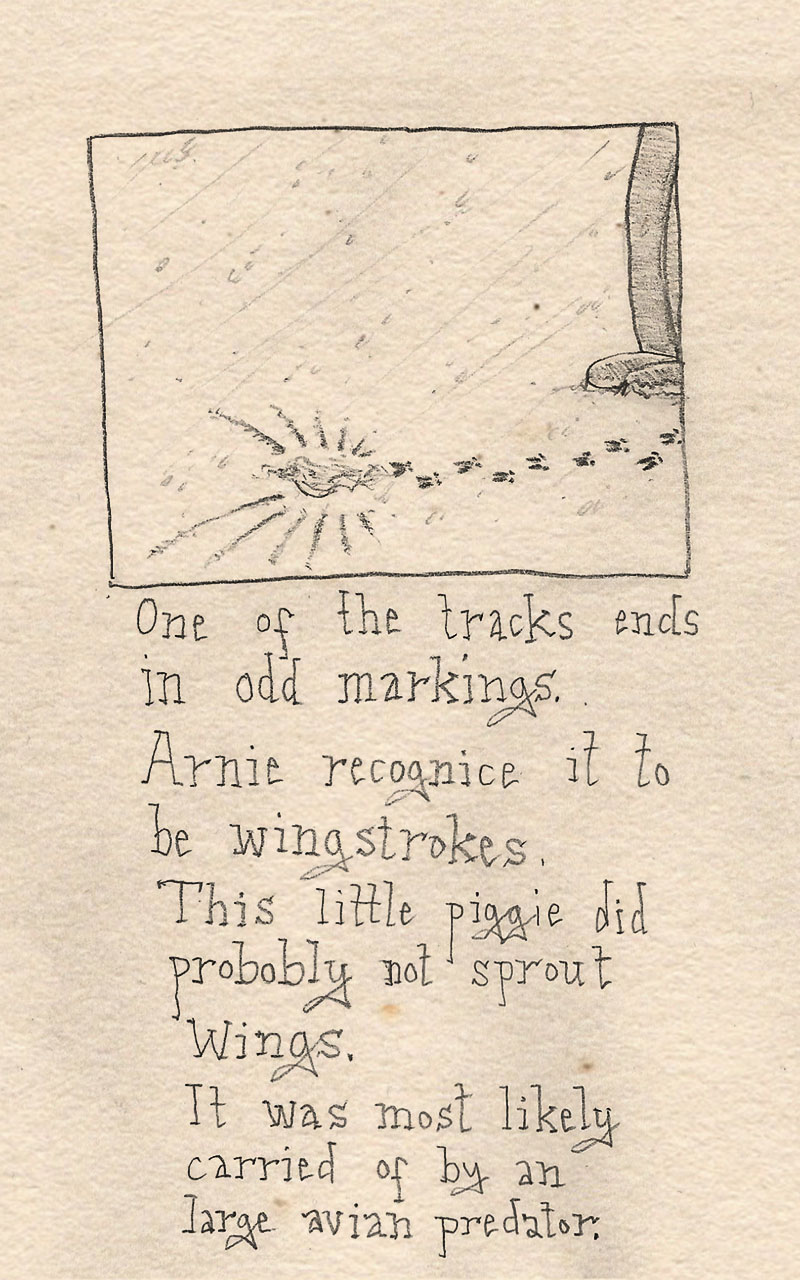 One of the tracks ends
in odd markings.
Arnie recognice it to
be wingstrokes.
This little piggie did
probobly not sprout
Wings.
It was most likely
carried of by an
large avian predator.